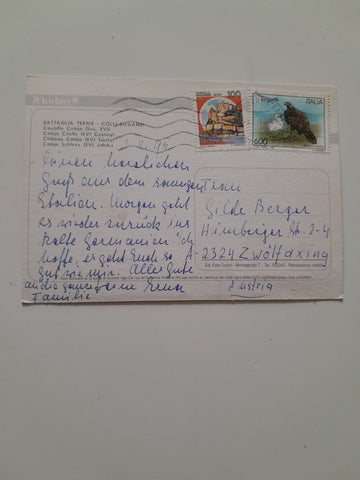 BATTAGLIA TERME - COLLI EUGANEI
Castello Catajo (Sec. XVI)
Catajo Castle (XVI Century)
Château Catajo (XVI Siècle)
Catajo Schloss (XVI Jahrh.)
100
ITALIA
600
Einen herzlichen
Gruß aus dem sonnigen
Italien. Morgen geht
es wieder zurück ins
kalte Germanien. Ich
hoffe, es geht Euch so
gut wie mir. Alles Gute
an die ganze
Familie
Frau
Gilde Berger
Himberger Str. 2-4
A-2324 Zwölfaxing
Austria